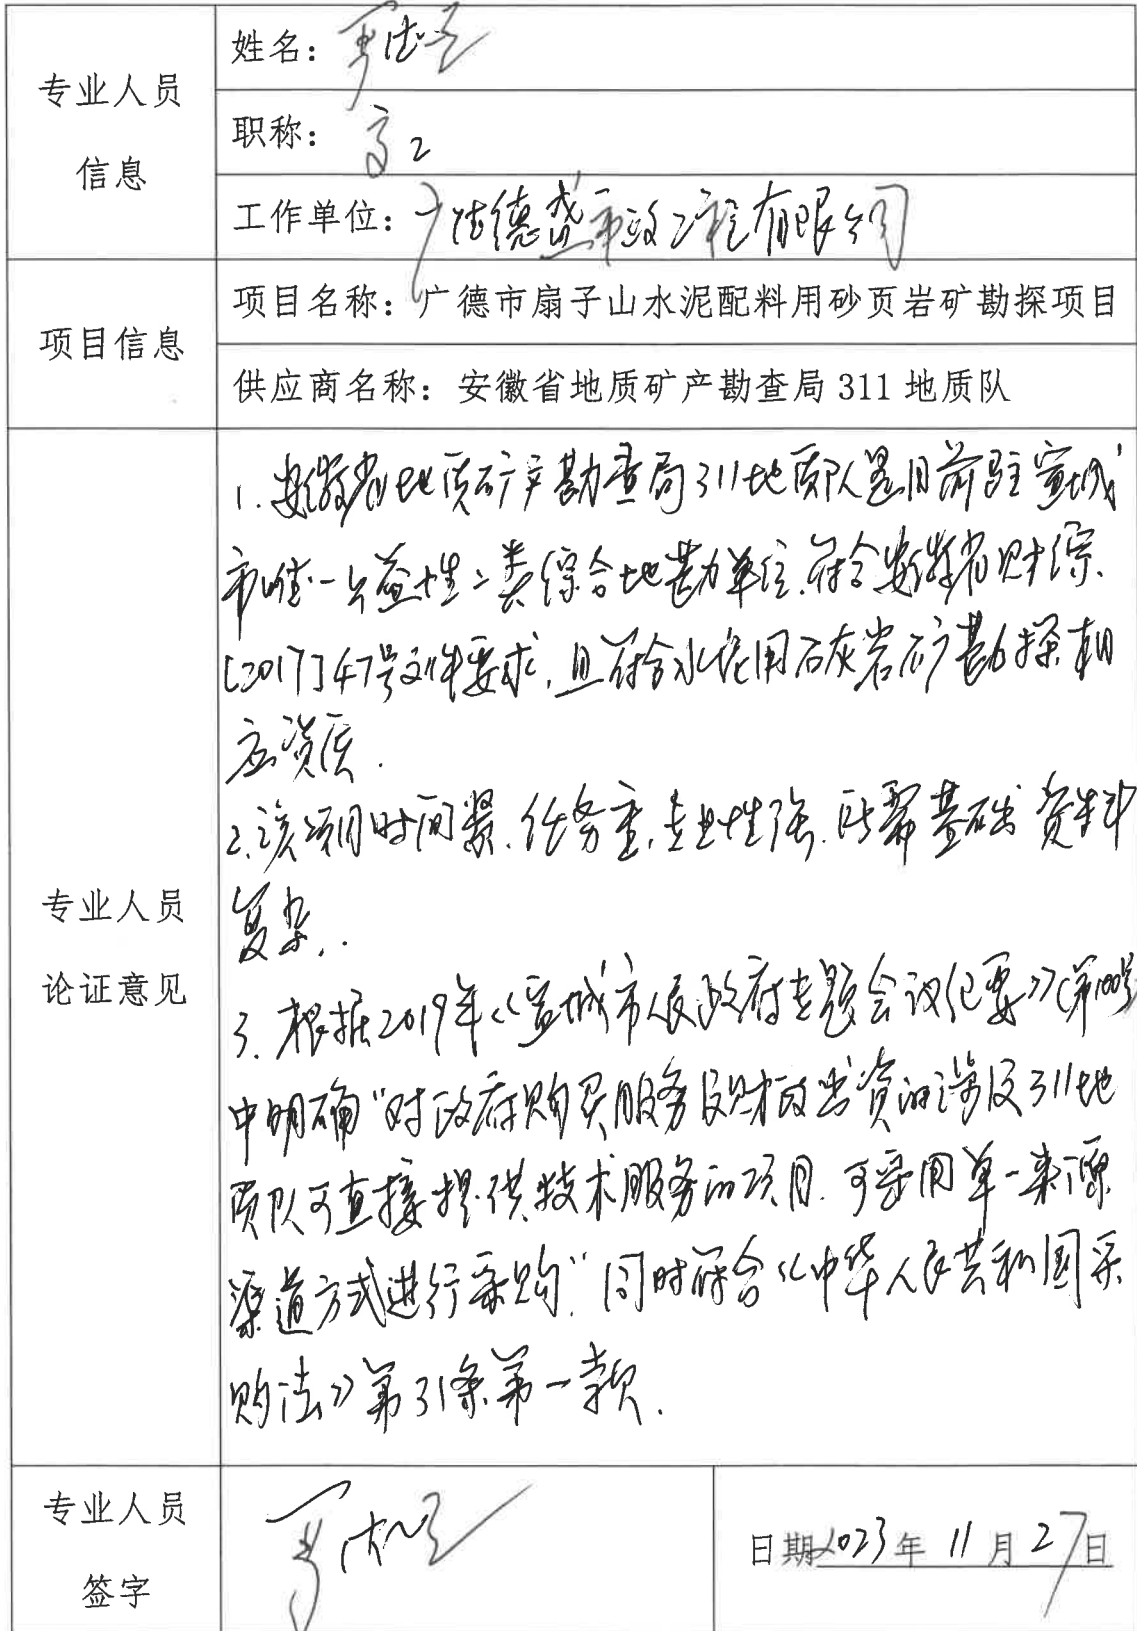 专业人员
信息
姓名：
职称：高工
工作单位：广德 市政工程有限公司
项目信息
项目名称：广德市扇子山水泥配料用砂页岩矿勘探项目
供应商名称：安徽省地质矿产勘查局 311 地质队
专业人员
论证意见
1. 安徽省地质矿产勘查局311地质队是目前驻宣城
市唯一公益性二类综合地勘单位.符合安徽省财综.
[2017]47号文件要求,且符合水泥用石灰岩矿勘探相
应资质.
2.该项目时间紧.任务重.专业性强.所需基础资料
复杂..
3. 根据2019年《宣城市人民政府专题会议纪要》(第100号
中明确"对政府购买服务及财政出资的涉及311地
质队可直接提供技术服务的项目.可采用单一来源
渠道方式进行采购."同时符合《中华人民共和国采
购法》第31条第一款.
专业人员
签字
日期2023年 11月 27日